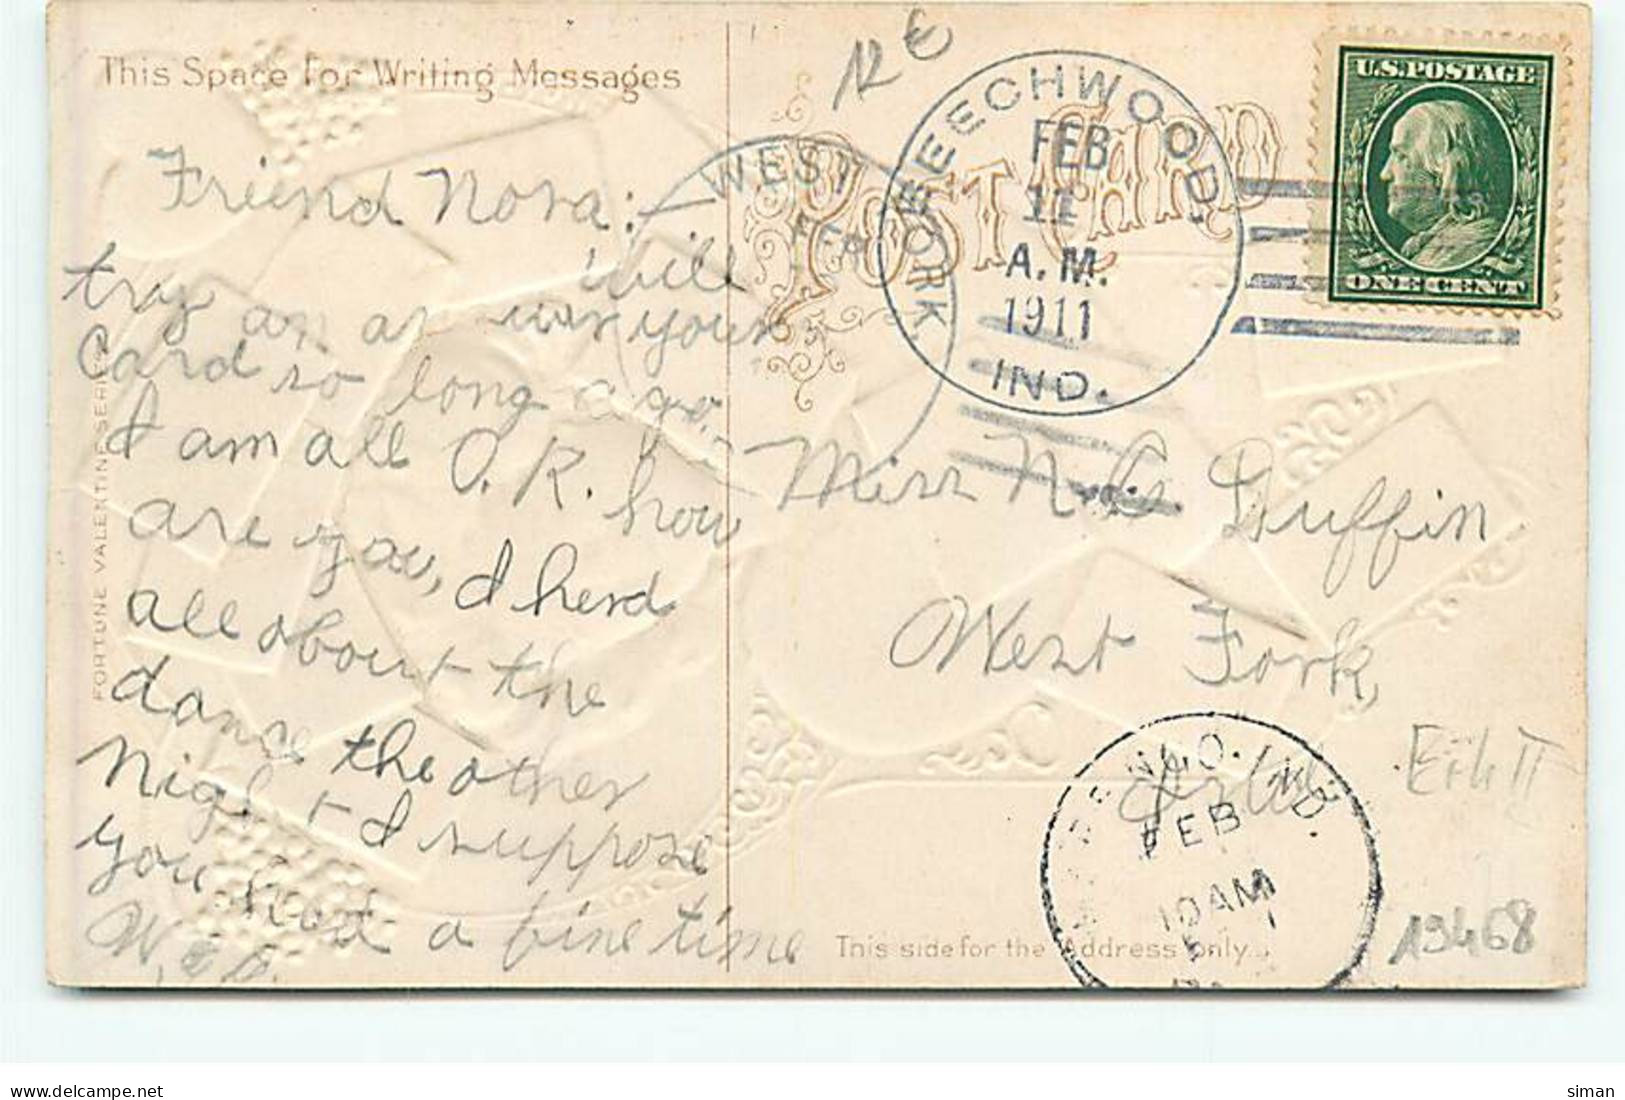 This Space For Writing Messages
12 €
Friend Nora:
will
try an answer your
Card so long ago.
I am all O.K. how
are you, I herd
all about the
dance the other
Night I suppose
you had a fine time
W.
FORTUNE VALENTINE SERIES
POST CARD
WEST FORK
BEECHWOOD,
FEB
11
A.M.
1911
IND.
U.S. POSTAGE
ONE CENT
Miss N. Duffin
West Fork,
Ind
REC'D.
FEB
10 AM
This side for the Address only.
13468
siman